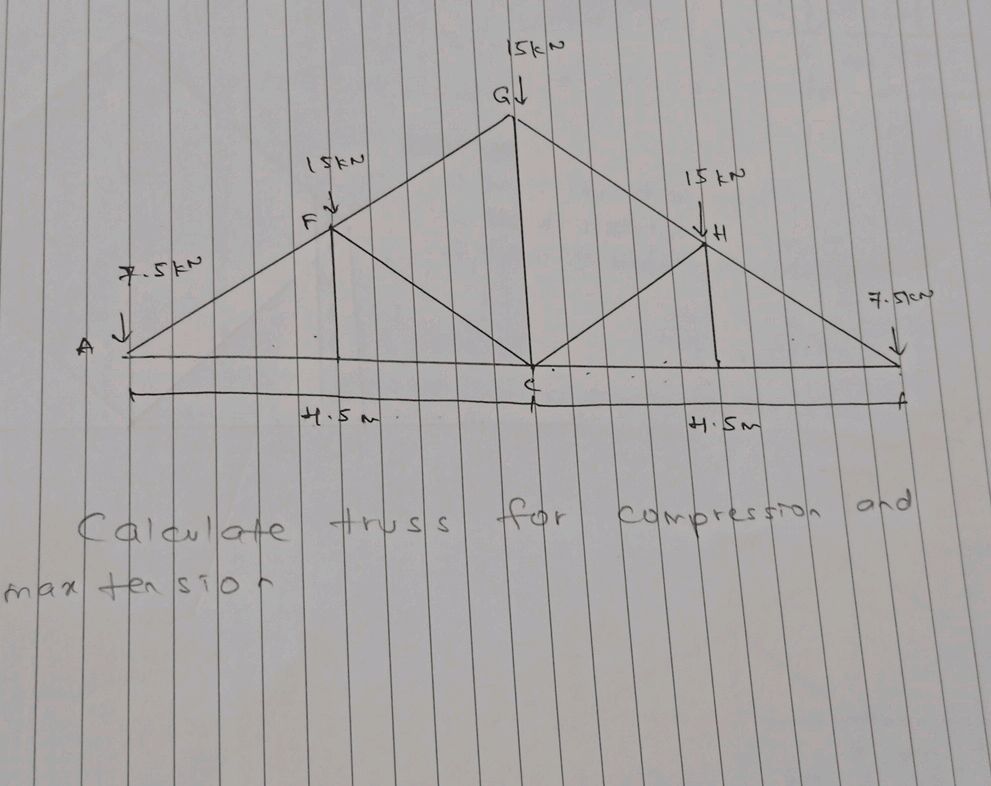 15kN
G
15kN
15kN
F
H
7.5kN
7.5kN
A
C
4.5m
4.5m
Calculate truss for compression and
max tension